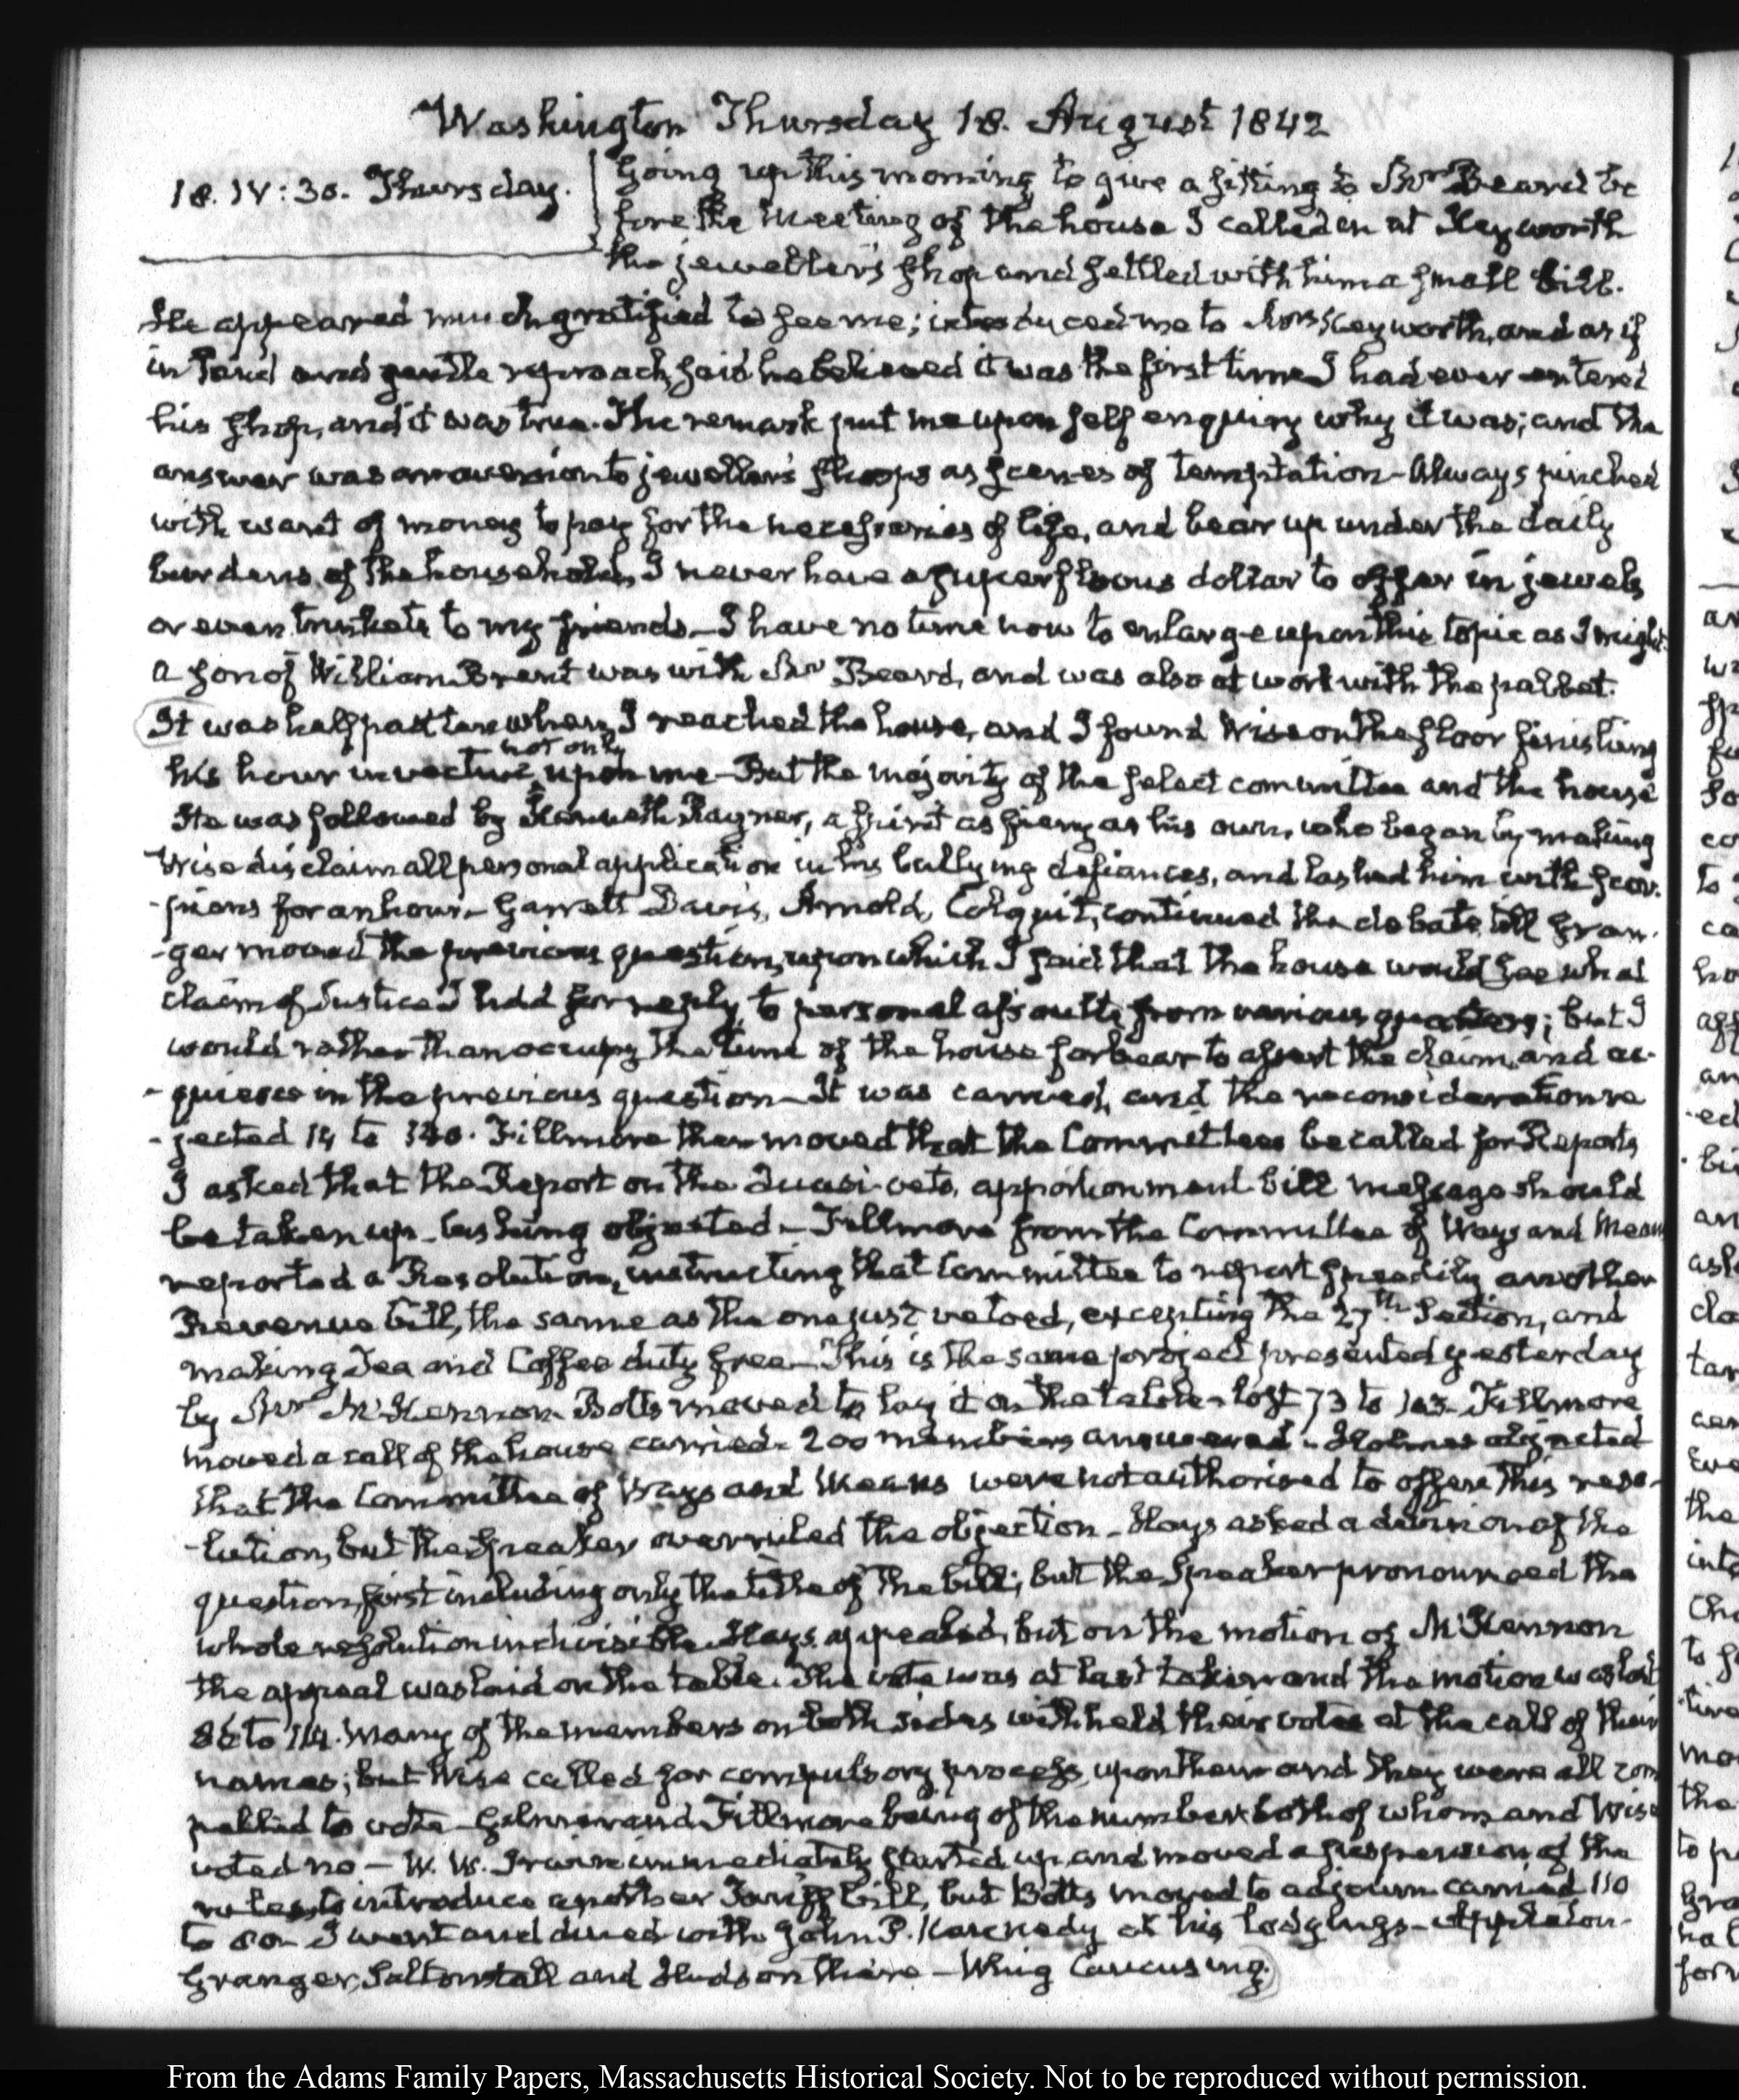 Washington Thursday 18. August 1842
18. IV:30. Thursday.
Going up this morning to give a sitting to Mr Beard be
fore the meeting of the house I called in at Keyworth
the jeweller's shop and settled with him a small bill.
He appeared much gratified to see me; introduced me to Mrs Keyworth, and as if
in kind and gentle reproach, said he believed it was the first time I had ever entered
his shop, and it was true. The remark put me upon self enquiry why it was; and the
answer was an aversion to jeweller's shops as scenes of temptation – Always pinched
with want of money to pay for the necessaries of life, and bear up under the daily
burdens of the household, I never have a superfluous dollar to offer in jewels
or even trinkets to my friends – I have no time now to enlarge upon this topic as I might.
a son of William Brent was with Mr Beard, and was also at work with the pallet.
It was half past ten when I reached the house, and I found Wise on the floor finishing
his hour invective, not only upon me – But the majority of the select committee and the house
He was followed by Kenneth Rayner, a spirit as fiery as his own, who began by making
Wise disclaim all personal application in his bullying defiances, and lashed him with scor-
-pions for an hour – Garrett Davis, Arnold, Colquit, continued the debate, till Gran-
-ger moved the previous question, upon which I said that the house would see what
claim of Justice I had for reply, to personal assaults from various quarters; but I
would rather than occupy the time of the house forbear to assert the claim, and ac-
-quiesce in the previous question – It was carried, and the reconsideration re
-jected 14 to 140. Fillmore then moved that the Committees be called for Reports
I asked that the Report on the Quasi-veto, apportionment bill message should
be taken up – Cushing objected – Fillmore from the Committee of Ways and Means
reported a Resolution, instructing that Committee to report speedily another
Revenue bill, the same as the one just vetoed, excepting the 27th Section, and
making Tea and Coffee duty free – This is the same project presented yesterday
by Mr McKennon. Botts moved to lay it on the table – lost 73 to 103. Fillmore
moved a call of the house carried – 200 members answered – Holmes objected
that the Committee of Ways and Means were not authorised to offer this reso-
-lution, but the Speaker overruled the objection – Hays asked a division of the
question, first including only the title of the bill; but the Speaker pronounced the
whole resolution indivisible. Hays appealed, but on the motion of McKennon
the appeal was laid on the table. The vote was at last taken and the motion was lost
86 to 114. Many of the members on both sides withheld their votes at the call of their
names; but Wise called for compulsory process upon them and they were all com
pelled to vote – Gilmer and Fillmore being of the number both of whom and Wise
voted no – W. W. Irwin immediately started up and moved a suspension of the
rules, to introduce another Tariff bill, but Botts moved to adjourn carried 110
to 80 – I went and dined with John P. Kennedy at his lodgings – Appleton
Granger, Saltonstall and Hudson there – Whig Caucusing.
From the Adams Family Papers, Massachusetts Historical Society. Not to be reproduced without permission.